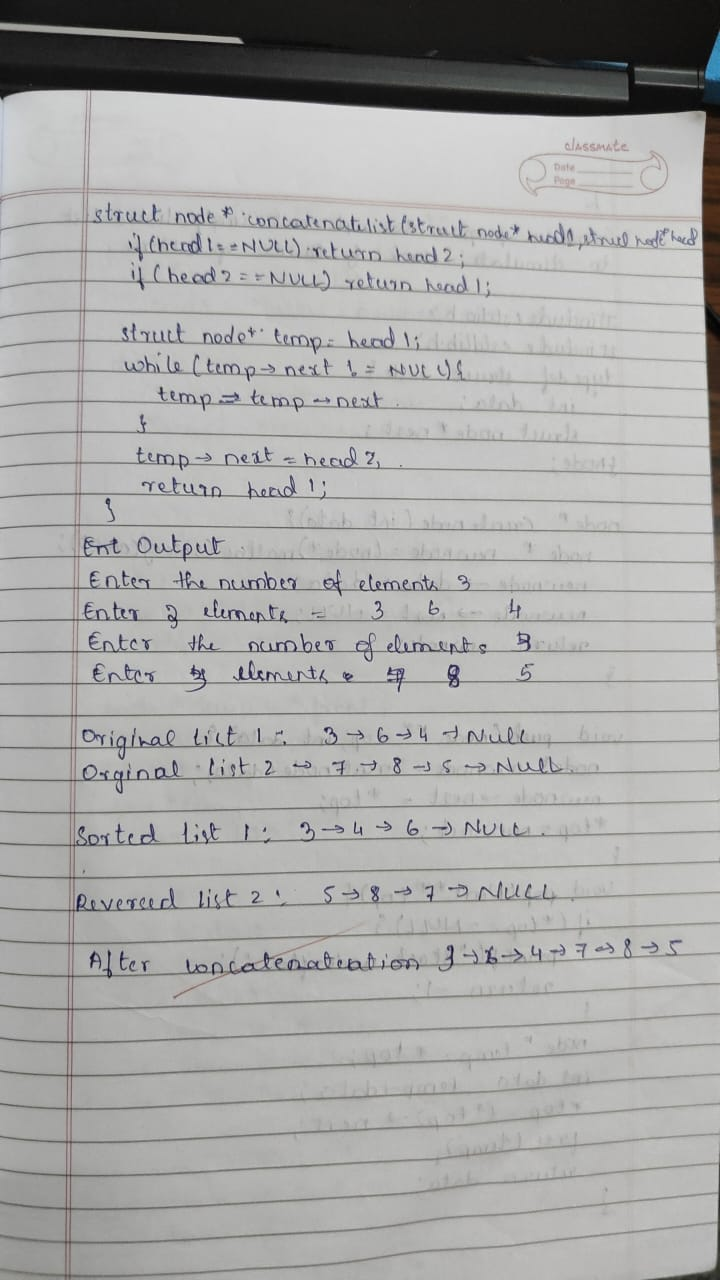 classmate
Date
Page
struct node * concatenatelist (struct node* head1, struct node* head
if (head1 == NULL) return head2;
if (head2 == NULL) return head1;
struct node* temp = head1;
while (temp → next != NULL) {
temp = temp → next.
}
temp → next = head2,
return head1;
}
Output
Enter the number of elements 3
Enter 3 elements = 3 6 4
Enter the number of elements 3
Enter 3 elements 7 8 5
Original list 1 : 3 → 6 → 4 → NULL
Orginal list 2 → 7 → 8 → 5 → NULL.
Sorted list 1 : 3 → 4 → 6 → NULL.
Reversed list 2 : 5 → 8 → 7 → NULL.
After concatenateation 3 → 6 → 4 → 7 → 8 → 5